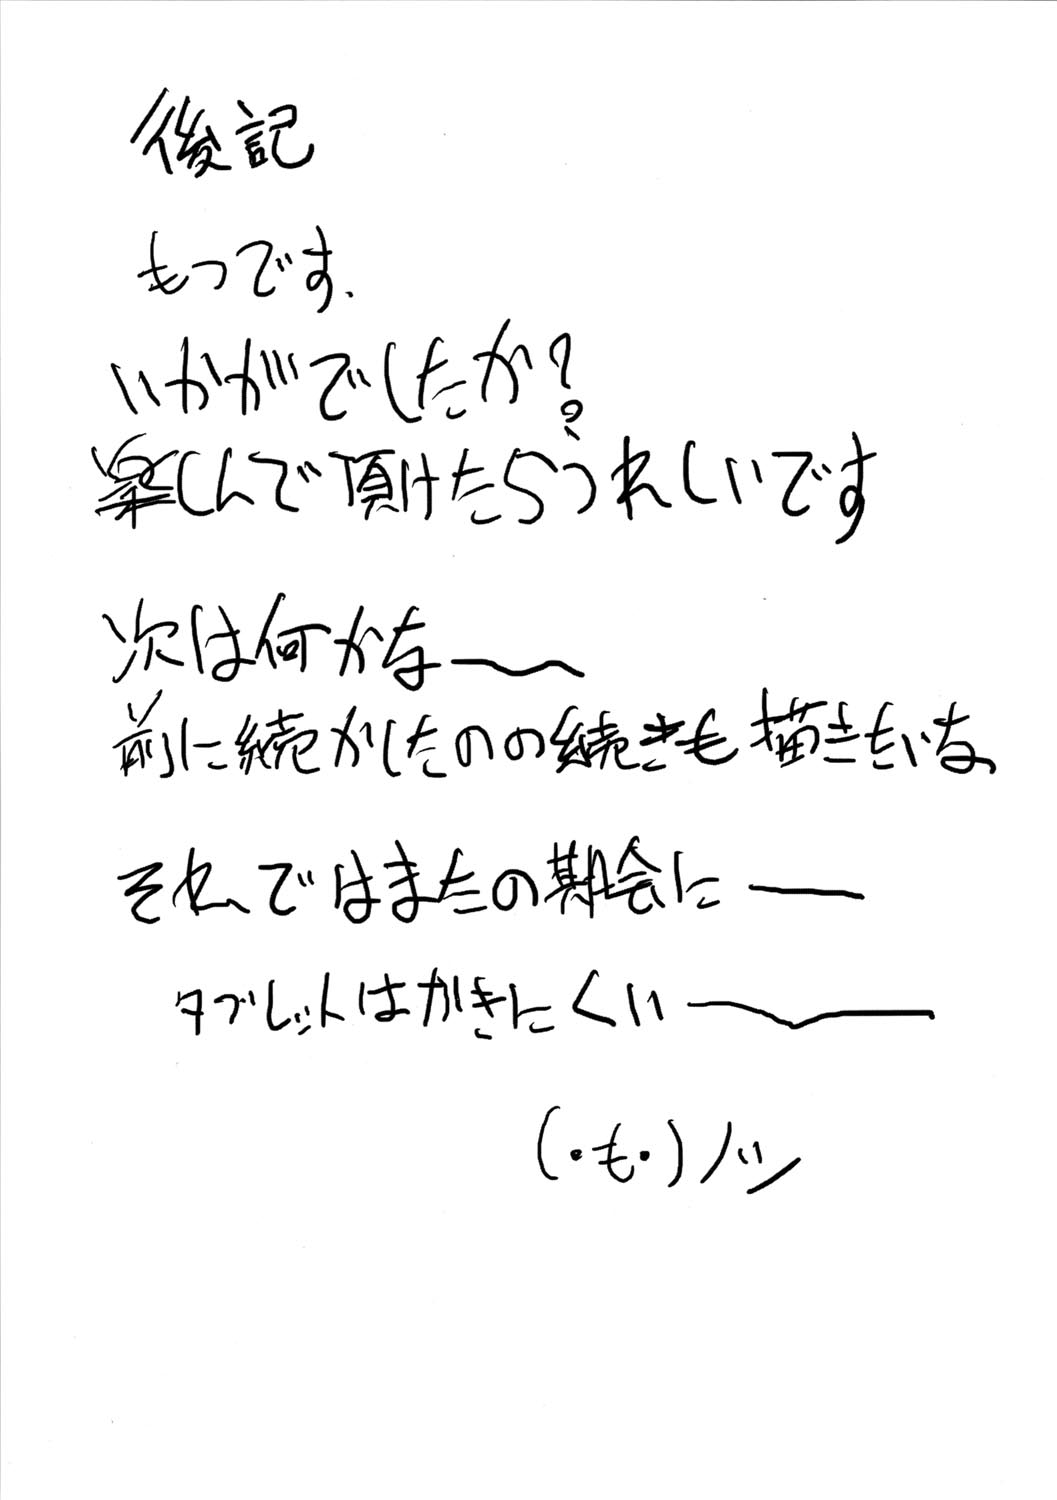 後記
もつです.
いかがでしたか?
楽しんで頂けたらうれしいです
次は何かな〜
前に続かしたのの続きも描きたいな
それではまたの期会にー
タブレットはかきにくいー
(・も・)ノシ